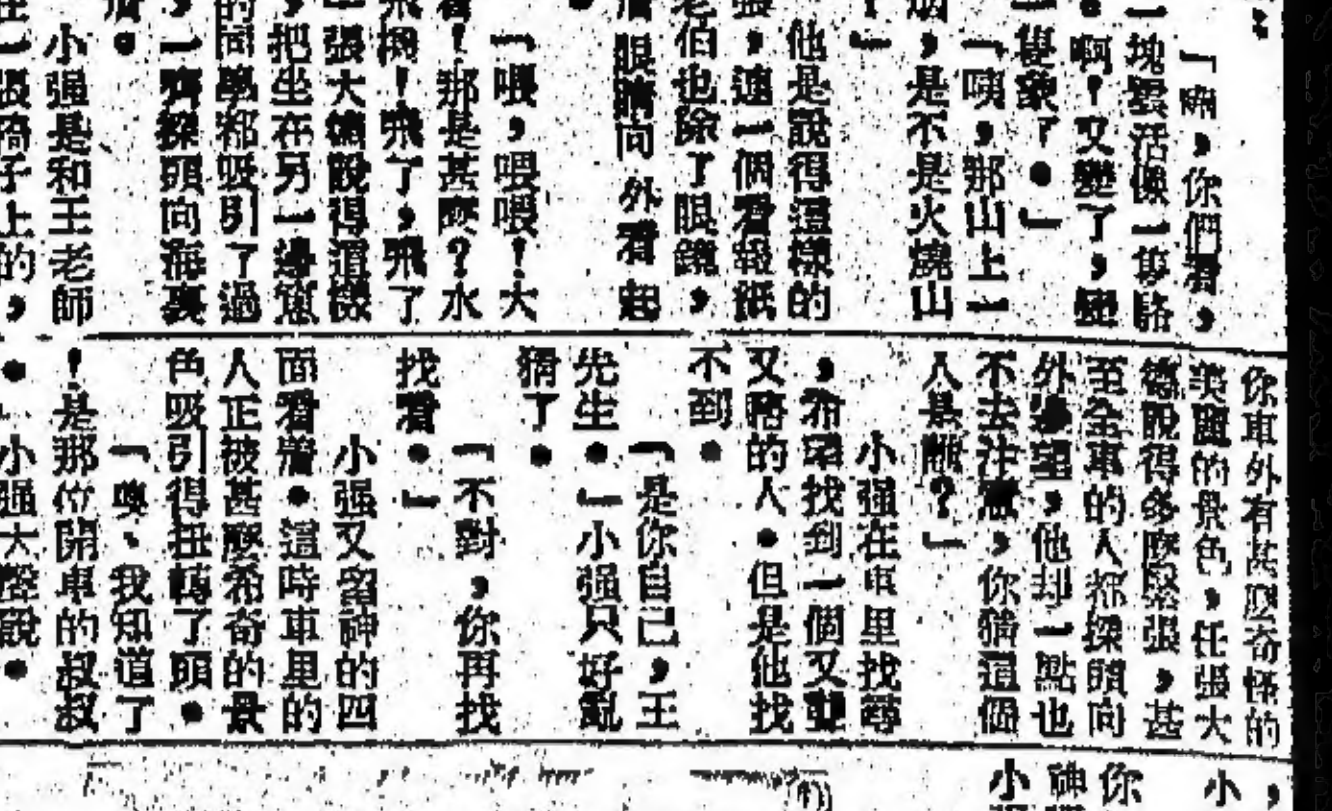 「嘩,你們看,
一塊雲活像一隻駱
●啊!又變了,變
一隻象了●」
「咦,那山上一
,是不是火燒山
」
他是說得這樣的
張,連一個看報紙
老伯也除了眼鏡,
眼睛向外看起
「喂,喂喂!大
看!那是甚麼?水
飛機!飛了,飛了
張大德說得這樣
,把坐在另一邊窗
的同學都吸引了過
,一齊探頭向海裏
●
小强是和王老師
一張椅子上的,
你車外有甚麼奇怪的
美麗的景色,任張大
德說得多麼緊張,甚
至全車的人都探頭向
外邊望,他却一點也
不去注意,你猜這個
人是誰?」
小强在車里找尋
,希望找到一個又聾
又啞的人●但是他找
不到●
「是你自己,王
先生●」小强只好亂
猜了●
「不對,你再找
找看●」
小强又留神的四
面看着●這時車里的
人正被甚麼希奇的景
色吸引得扭轉了頭●
「噢、我知道了
!是那位開車的叔叔
●小强大聲說●
小
你
神
小